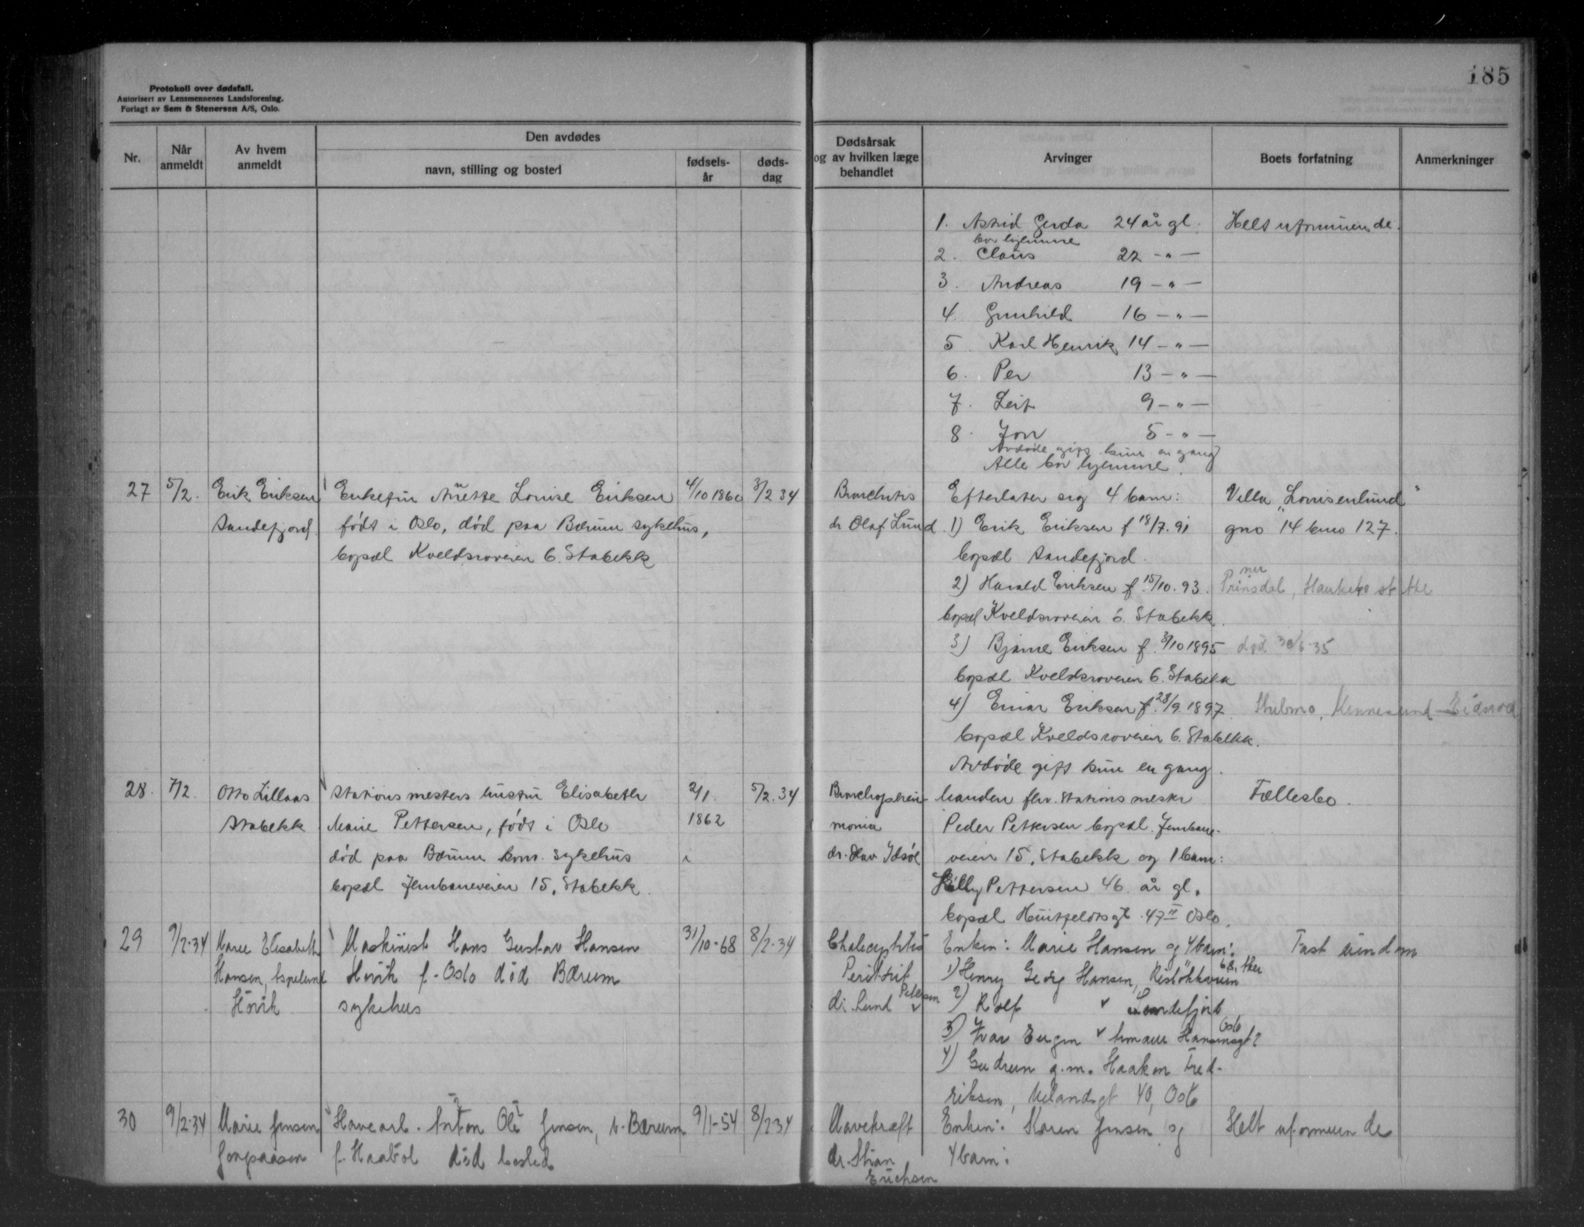 185
Protokoll over dødsfall.
Autorisert av Lensmennenes Landsforening.
Forlagt av Sem & Stenersen A/S, Oslo.
Nr.
Når anmeldt
Av hvem anmeldt
Den avdødes
navn, stilling og bosted
fødsels-år
døds-dag
Dødsårsak og av hvilken læge behandlet
Arvinger
Boets forfatning
Anmerkninger
1. Astrid Gerda 24 år gl. Helt uformuende.
bor hjemme
2. Claus 22 -„-
3. Andreas 19 -„-
4. Gunhild 16 -„-
5. Karl Henrik 14 -„-
6. Per 13 -„-
7. Leif 9 -„-
8. Jon 5 -„-
Avdøde gift kun en gang
Alle bor hjemme.
27 5/2. Erik Eriksen Enkefru Anette Louise Eriksen 4/10 1860 3/2 34 Bronchitis Efterlater sig 4 barn: Villa „Louisenlund"
Sandefjord født i Oslo, død paa Bærum sykehus, dr Olaf Lund 1) Erik Eriksen f 18/7. 91 gno 14 bno 127.
bopæl Kveldsroveien 6. Stabekk bopæl Sandefjord.
2) Harald Eriksen f. 15/10. 93. Prinsdal,
bopæl Kveldsroveien 6. Stabekk.
3) Bjarne Eriksen f. 3/10 1895 død 30/6 35
bopæl Kveldsroveien 6. Stabekk
4) Einar Eriksen f. 28/9 1897.
bopæl Kveldsroveien 6. Stabekk.
Avdøde gift kun en gang.
28. 7/2. Otto Lillaas Stationsmesters hustru Elisabeth 2/1. 5/2. 34 Bronchopneu- Manden fhv. stationsmester Fællesbo.
Stabekk Marie Pettersen, født i Oslo 1862 monia Peder Pettersen bopæl. Jernbane-
død paa Bærum kom. sykehus dr. Olav veien 15, Stabekk og 1 barn:
bopæl Jernbaneveien 15, Stabekk. Pettersen 46 år gl.
bopæl Huitfeldtsgt 47 II Oslo.
29 9/2-34 Marie Elisabeth Maskinist Hans Gustav Hansen 31/10-68 8/2-34 Enken: Marie Hansen og 4 barn: Fast eiendom
Hansen, Høvik f. Oslo død Bærum 1) Henry Georg Hansen,
Høvik sykehus dr. Lund Petersen 2) Rolf " Sandefjord
3) Ivar " Oslo
4) Gudrun g.m. Haakon Fred-
riksen, Uelandsgt 40, Oslo
30 9/2-34 Marie Jensen Havearb. Anton Ole Jensen, V. Bærum 9/1-54 8/2 34 Mavekræft Enken: Maren Jensen og Helt uformuende
f. Haabøl død bosted dr. Stian Erichsen 4 barn: